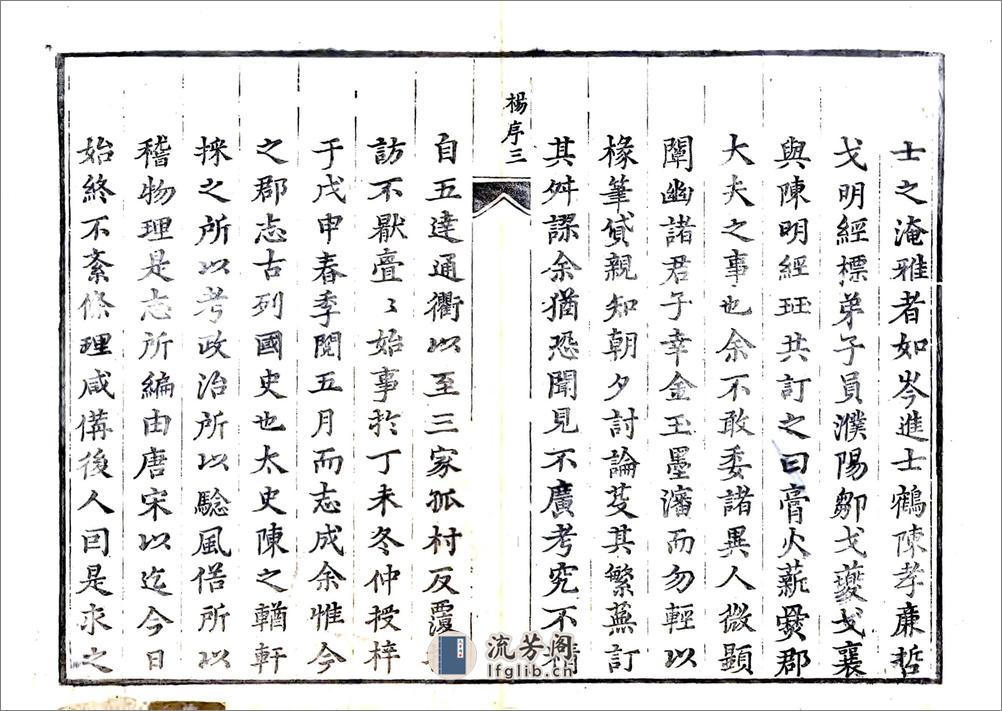 士之淹雅者如岑進士鶴陳孝廉哲
戈明經標弟子員濮陽鄒戈夔戈襄
與陳明經珏共訂之曰膏火薪爨郡
大夫之事也余不敢委諸異人微顯
闡幽諸君子幸金玉墨瀋而勿輕以
椽筆貸親知朝夕討論芟其繁蕪訂
其舛謬余猶恐聞見不廣考究不精
楊序三
自五達通衢以至三家孤村反覆
訪不厭亹〻始事於丁未冬仲授梓
于戊申春季閱五月而志成余惟今
之郡志古列國史也太史陳之輶軒
採之所以考政治所以驗風俗所以
稽物理是志所編由唐宋以迄今日
始終不紊條理咸備後人囙是求之
流芳阁
lfglib.cn